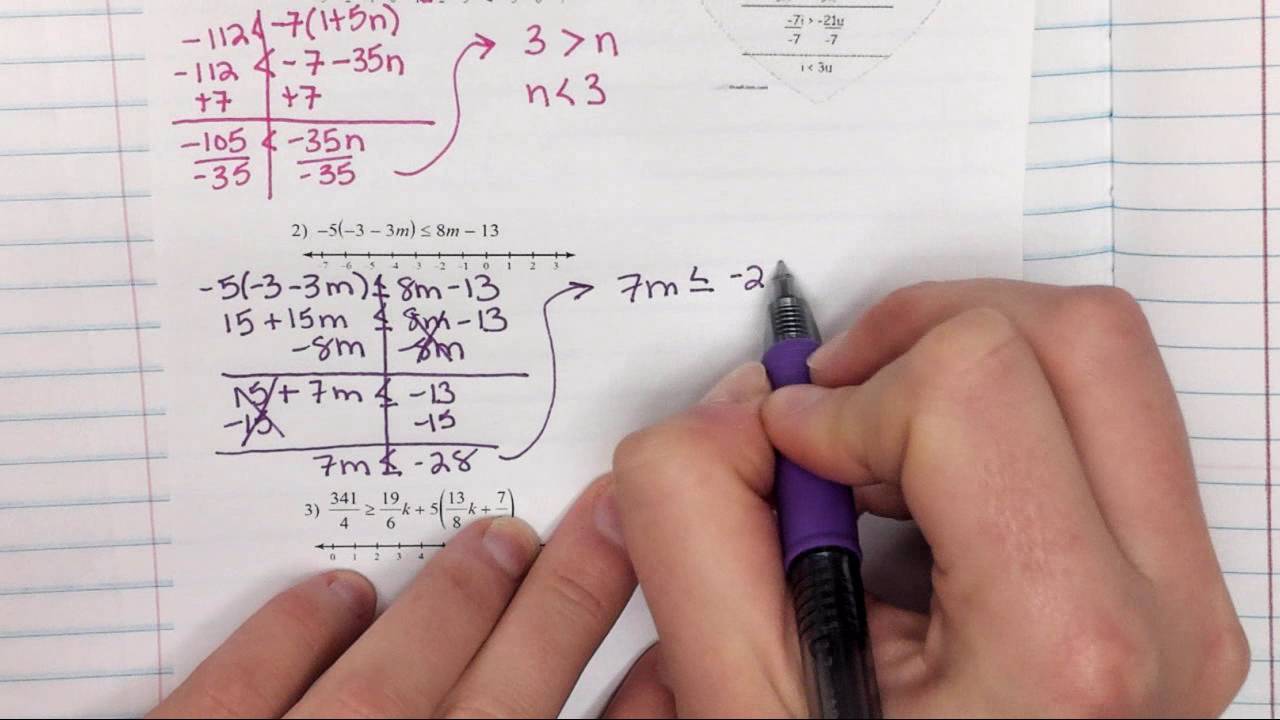 -112 < -7(1+5n)
-112 < -7 -35n
+7 +7
-105 < -35n
-35 -35
3 > n
n < 3
-7i > -21u
-7 -7
i < 3u
2) -5(-3 - 3m) ≤ 8m - 13
-7 -6 -5 -4 -3 -2 -1 0 1 2 3
-5(-3 -3m) ≤ 8m -13
15 + 15m ≤ 8m -13
-8m -8m
15 + 7m ≤ -13
-15 -15
7m ≤ -28
7m ≤ -2
3) 341/4 ≥ 19/6 k + 5(13/8 k + 7/ )
0 1 2 3 4